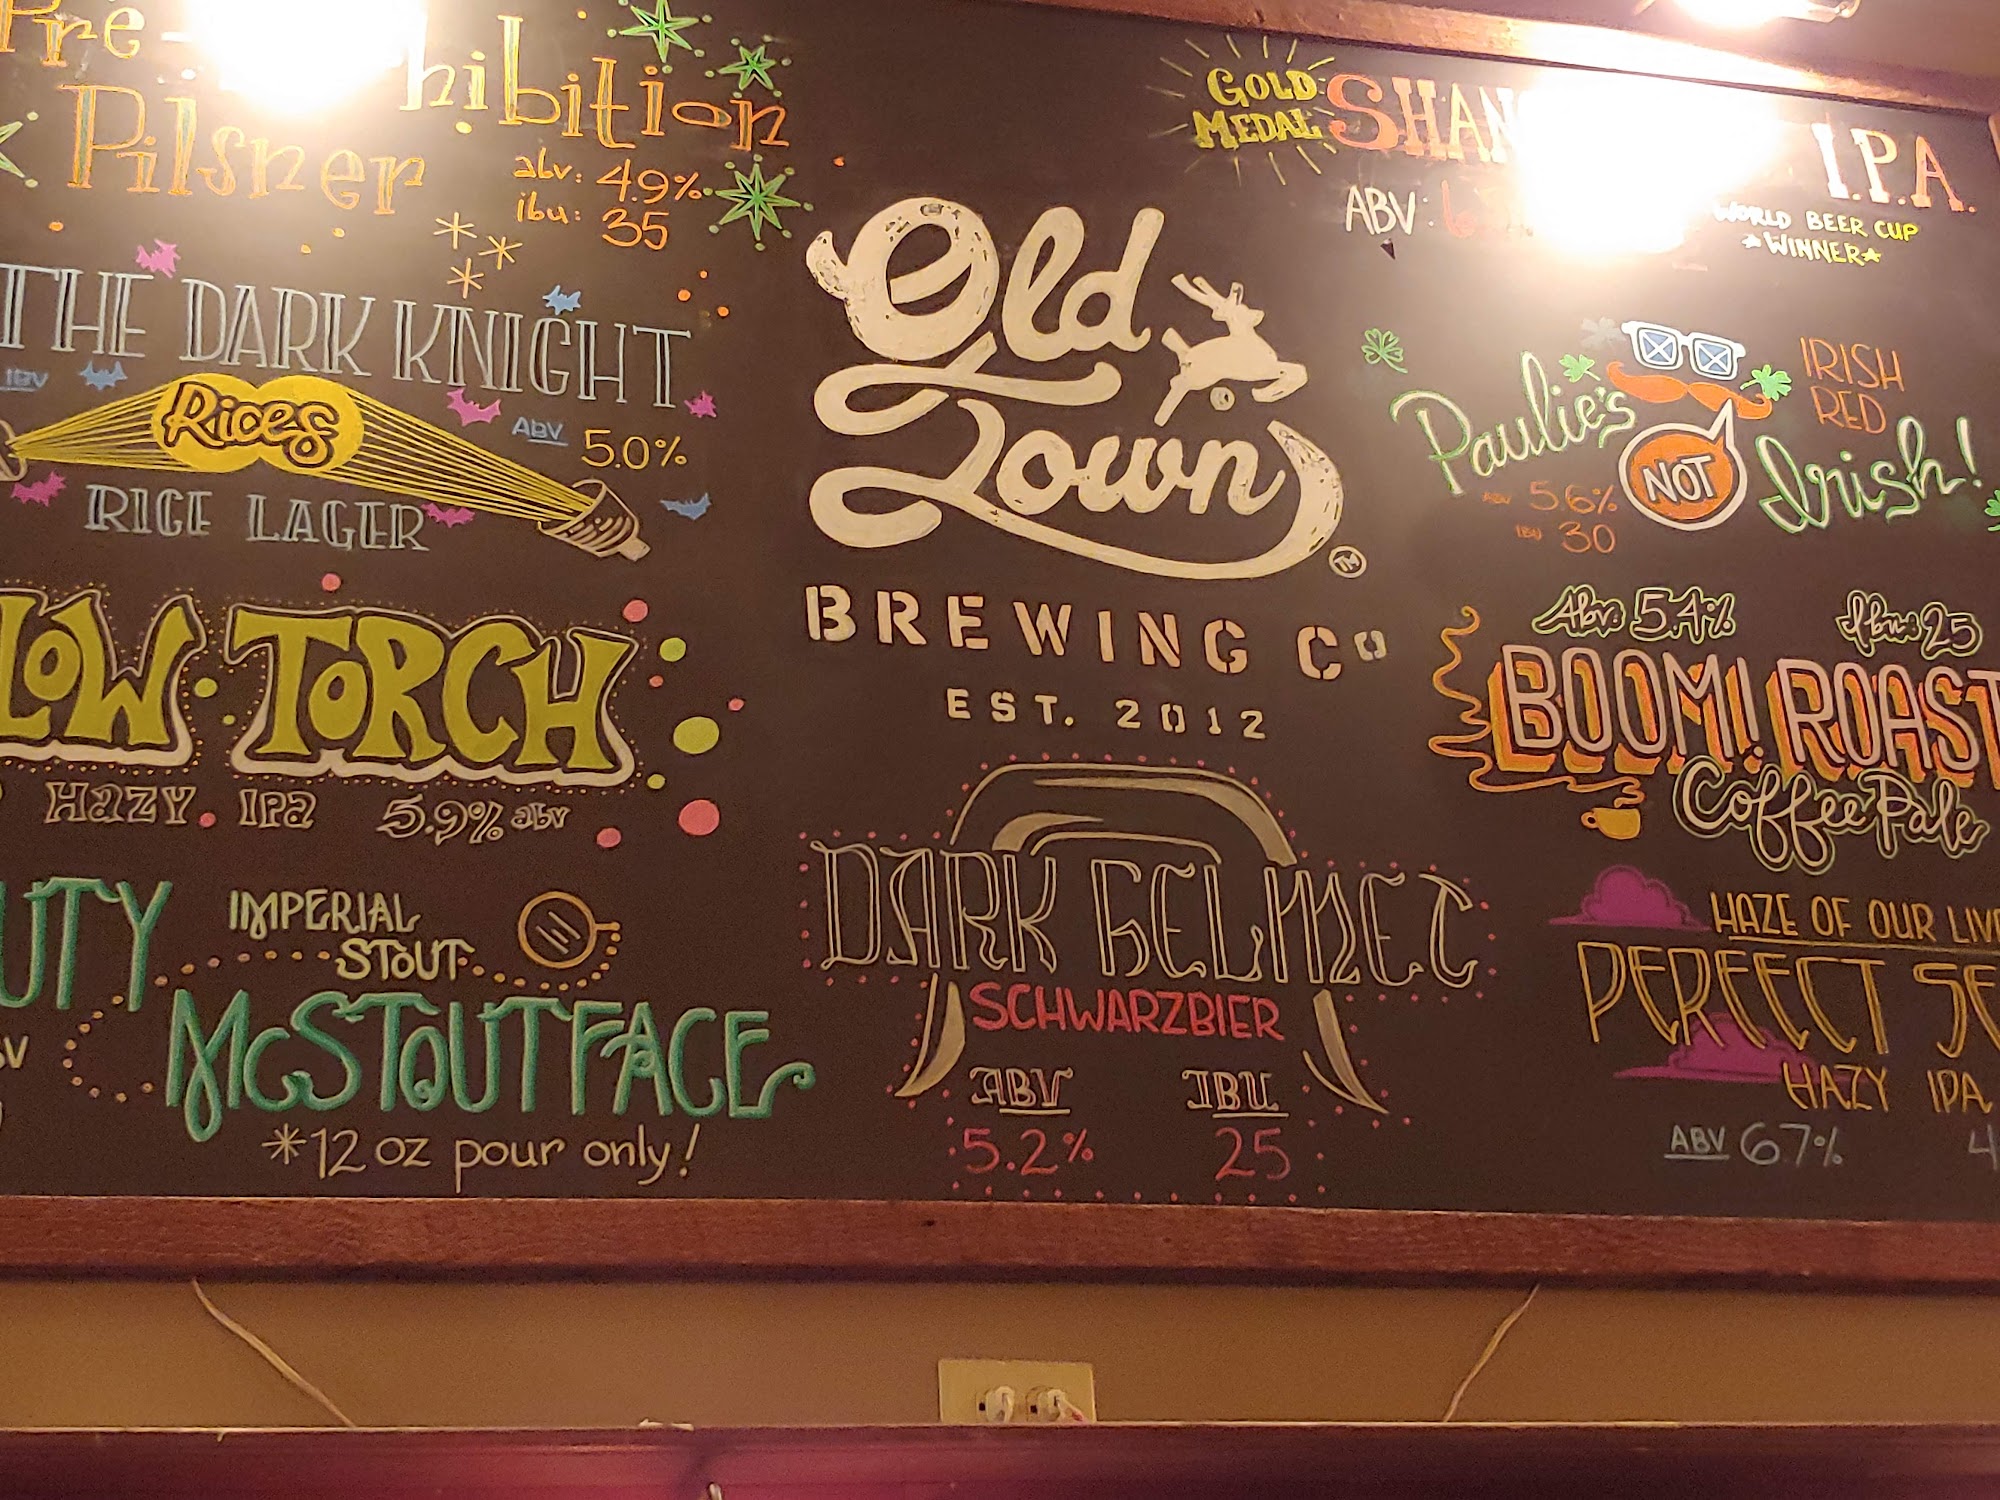 Pre-
hibition
Pilsner
abv: 4.9%
ibu: 35
THE DARK KNIGHT
IBV
Rices
ABV 5.0%
RICE LAGER
LOW TORCH
HAZY IPA 5.9% abv
UTY
IMPERIAL
STOUT
McSTOUTFACE
*12 oz pour only!
Old
Town
TM
BREWING CO
EST. 2012
DARK HELMET
SCHWARZBIER
ABV IBU
5.2% 25
GOLD
MEDAL
SHAN
I.P.A.
ABV:
WORLD BEER CUP
*WINNER*
IRISH
RED
Paulie's
NOT
Irish!
ABV 5.6%
IBU 30
Abv: 5.4% Ibu: 25
BOOM! ROAST
Coffee Pale
HAZE OF OUR LIVE
PERFECT SE
HAZY IPA
ABV 6.7% 4